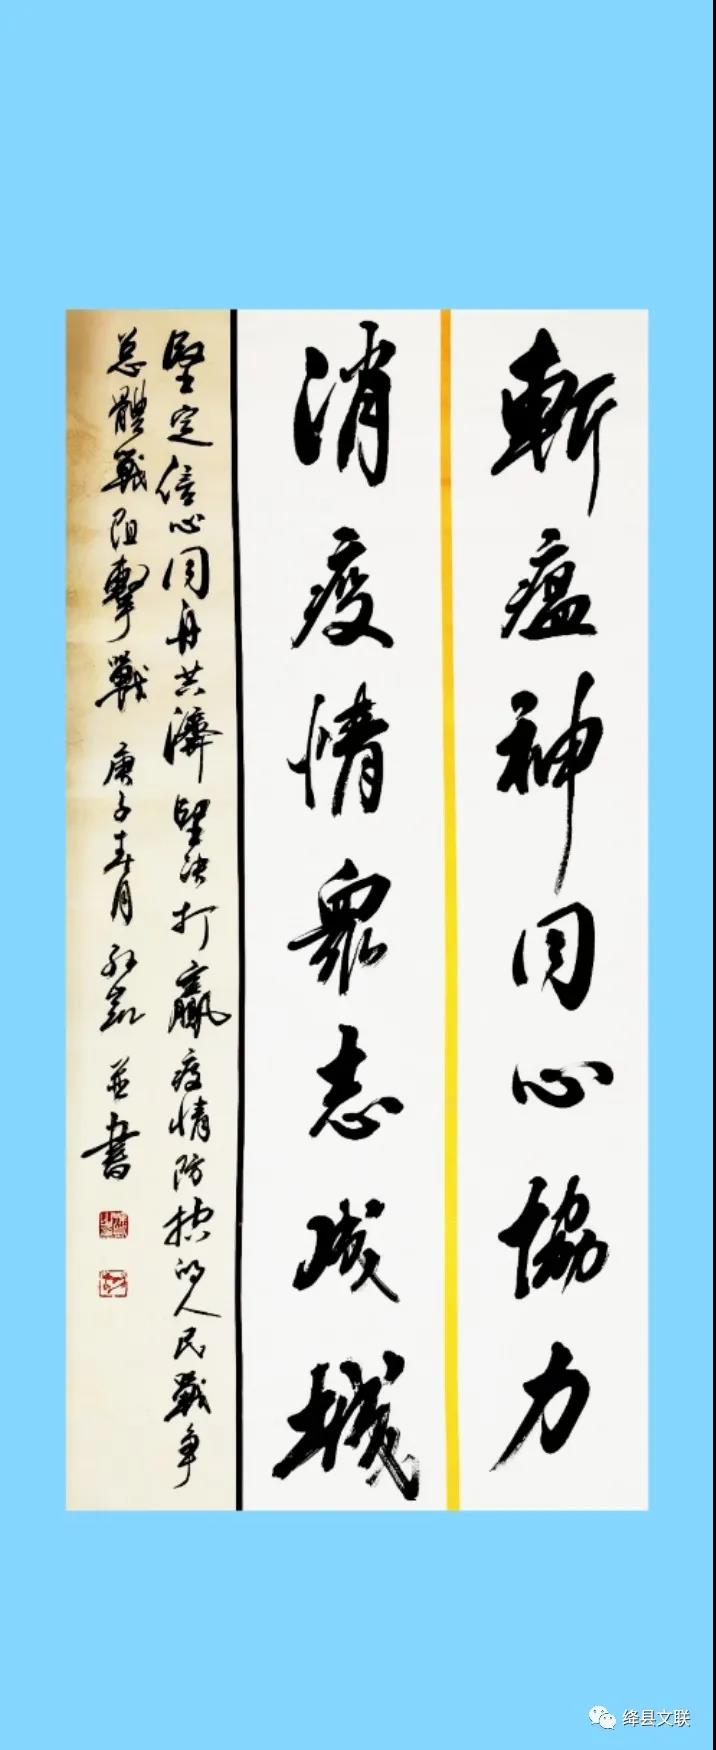 斬瘟神同心協力
消疫情衆志成城
堅定信心同舟共濟堅决打贏疫情防控的人民戰争
总體戰阻擊戰 庚子春月 凱並書
绛县文联